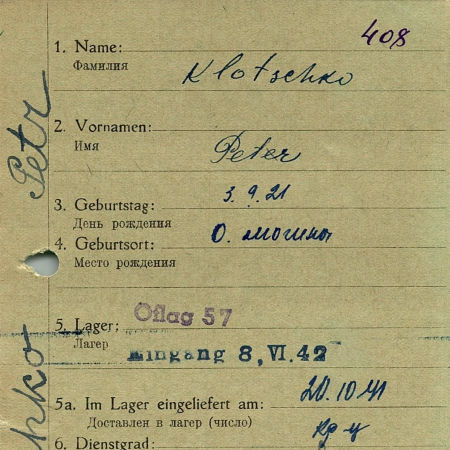 408
1. Name: Klotschko
Фамилия
2. Vornamen: Peter
Имя
3. Geburtstag: 3.9.21
День рождения
4. Geburtsort:
Место рождения
5. Lager: Oflag 57
Лагер
Eingang 8,VI.42
5a. Im Lager eingeliefert am: 20.10.41
Доставлен в лагер (число)
6. Dienstgrad:
Petr